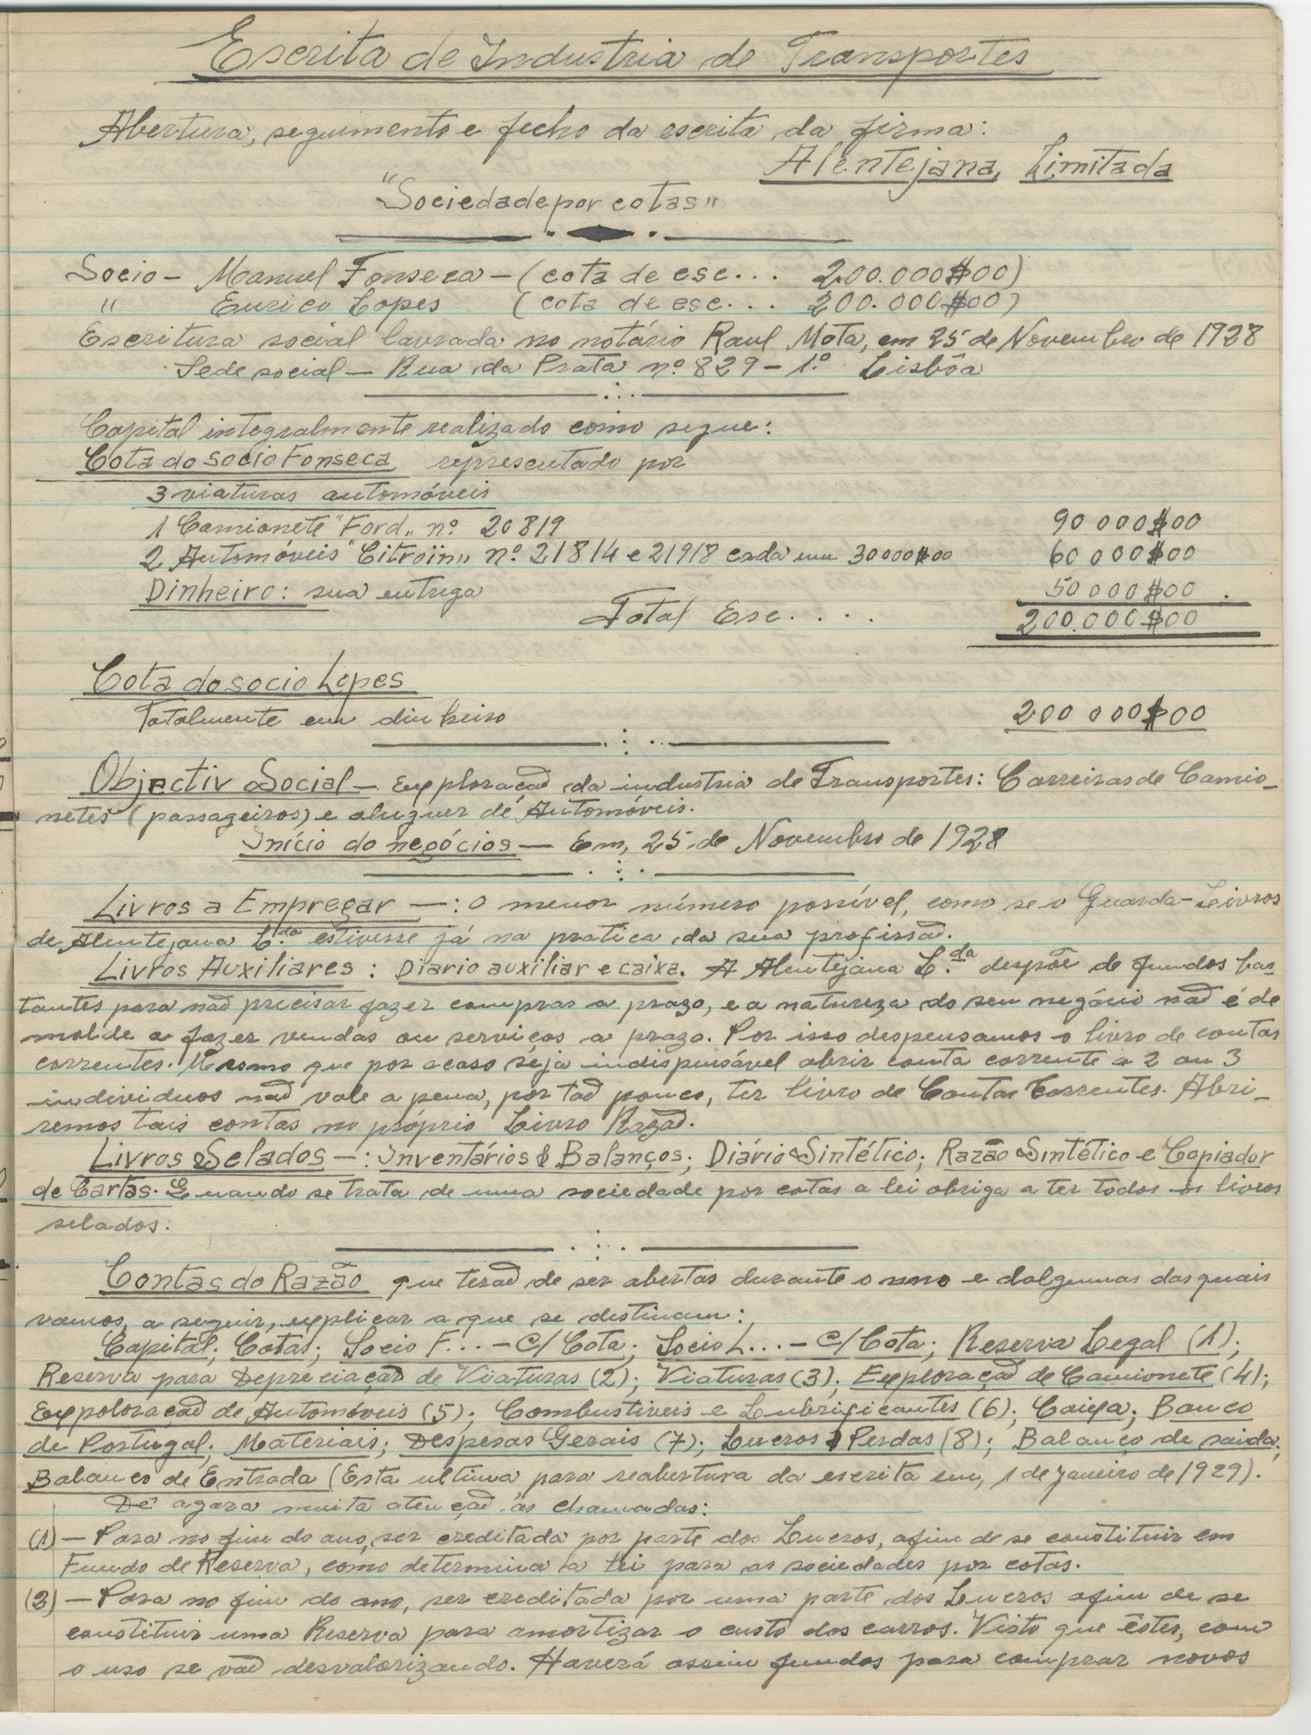 Escrita de Industria de Transportes
Abertura, seguimento e fecho da escrita da firma:
Alentejana, Limitada
"Sociedade por cotas"
Socio - Manuel Fonseca - (cota de esc... 200.000$00)
" Eurico Lopes (cota de esc... 200.000$00)
Escritura social lavrada no notário Raul Mota, em 25 de Novembro de 1928
Sede social - Rua da Prata nº 829 - 1.º Lisbôa
Capital integralmente realizado como segue:
Cota do socio Fonseca representado por
3 viaturas automóveis
1 Camionete "Ford" nº 20819 90 000$00
2 Automóveis "Citroïn" nº 21814 e 21918 cada um 30000$00 60 000$00
Dinheiro: sua entrega 50 000$00.
Total Esc.... 200.000$00
Cota do socio Lopes
Totalmente em dinheiro 200 000$00
Objectiv Social - Exploração da industria de Transportes: Carreiras de Camio-
netes (passageiros) e aluguer de Automóveis.
Início do negócios - Em, 25 de Novembro de 1928
Livros a Empregar -: O menor número possível, como se o Guarda-Livros
de Alentejana L.da estivesse já na pratica da sua profissão.
Livros Auxiliares: Diario auxiliar e caixa. A Alentejana L.da despõe de fundos bas-
tantes para não precisar fazer compras a prazo, e a natureza do seu negócio não é de
molde a fazer vendas ou serviços a prazo. Por isso despensamos o livro de contas
correntes. Mesmo que por acaso seja indispensável abrir conta corrente a 2 ou 3
individuos não vale a pena, por tão pouco, ter livro de Contas Correntes. Abri-
remos tais contas no próprio Livro Razão.
Livros Selados -: Inventários & Balanços; Diário Sintético; Razão Sintético e Copiador
de Cartas. Quando se trata de uma sociedade por cotas a lei obriga a ter todos os livros
selados.
Contas do Razão que terão de ser abertas durante o ano e dalgumas das quais
vamos, a seguir, explicar a que se destinam:
Capital; Cotas; Socio F... - C/ Cota; Socio L... - C/ Cota; Reserva Legal (1);
Reserva para Depreciação de Viaturas (2); Viaturas (3); Exploração de Camionete (4);
Expoloração de Automóveis (5); Combustiveis e Lubrificantes (6); Caixa; Banco
de Portugal; Materiais; Despesas Gerais (7); Lucros & Perdas (8); Balanço de saida;
Balanço de Entrada (Esta ultima para reabertura da escrita em, 1 de Janeiro de 1929).
Dê agora muita atenção às chamadas:
(1) - Para no fim do ano, ser creditada por parte dos Lucros, afim de se constituir em
Fundo de Reserva, como determina a lei para as sociedades por cotas.
(2) - Para no fim do ano, ser creditada por uma parte dos Lucros afim de se
constituir uma Reserva para amortizar o custo dos carros. Visto que êstes, com
o uso se vão desvalorizando. Haverá assim fundos para comprar novos